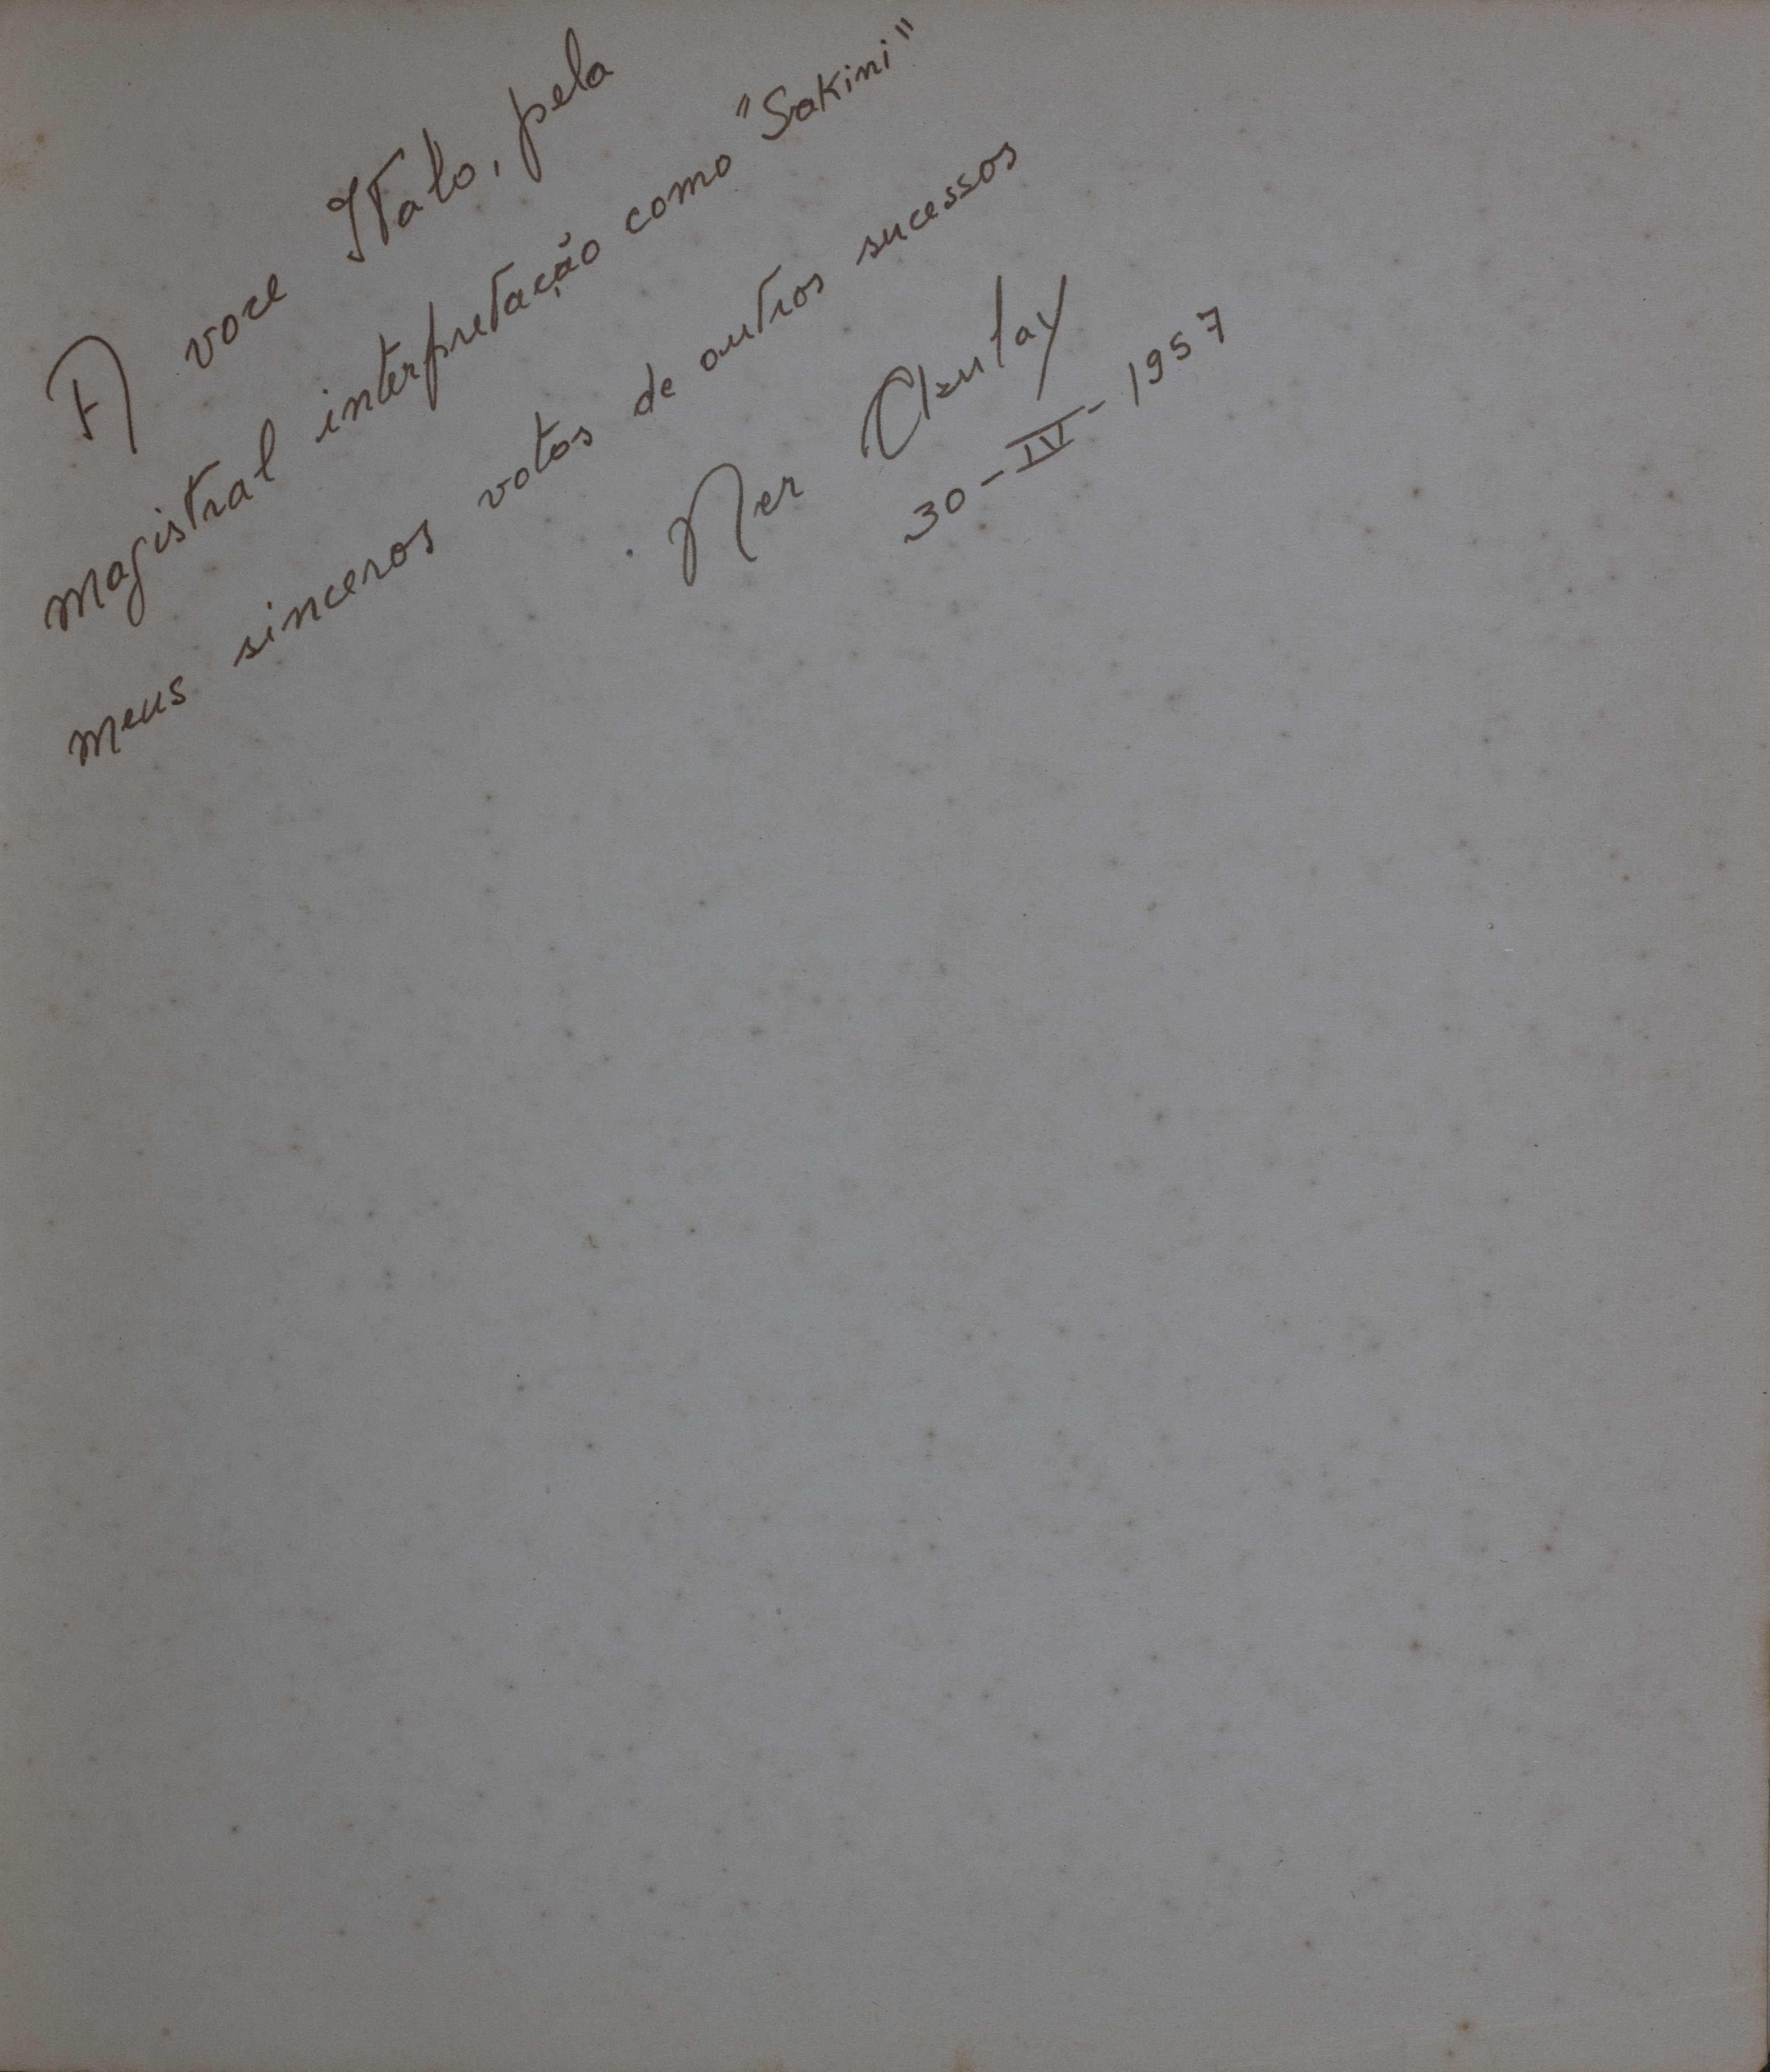 A voce Italo, pela
magistral interpretação como "Sakini"
meus sinceros votos de outros sucessos
Ner
30-IV-1957